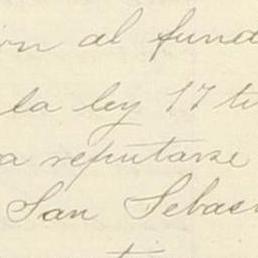 ion al fund
la ley 17 ti
a reputarse
San Sebas